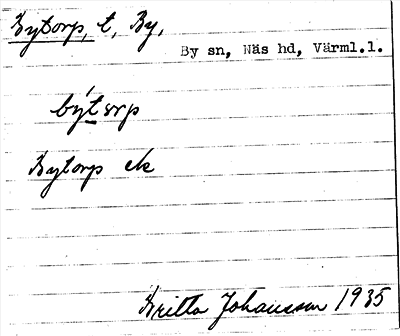 Bytorp, t, By,
By sn, Näs hd, Värml.l.
býtorp
Bytorp ek
Britta Johansson 1935